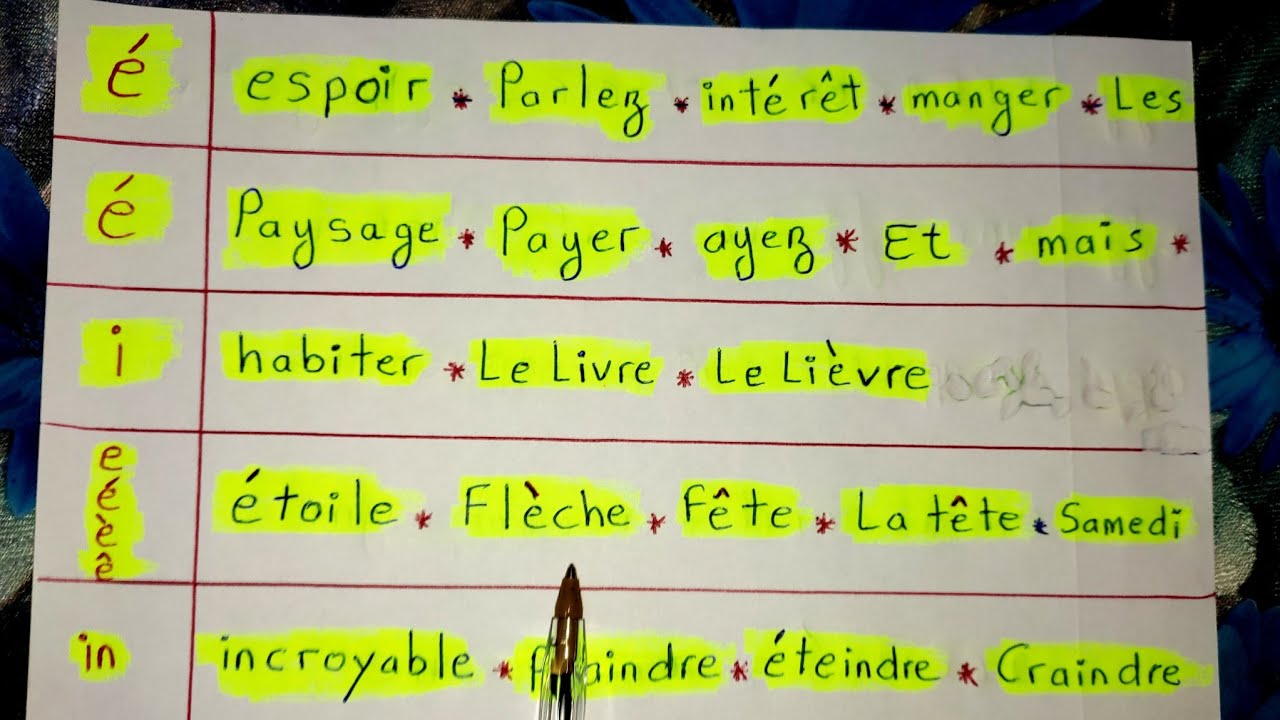 é espoir * Parlez * intérêt * manger * Les
é Paysage * Payer * ayez * Et * mais *
i habiter * Le Livre * Le Lièvre
e é è ê étoile * Flèche * Fête * La tête * Samedi
in incroyable * * éteindre * Craindre